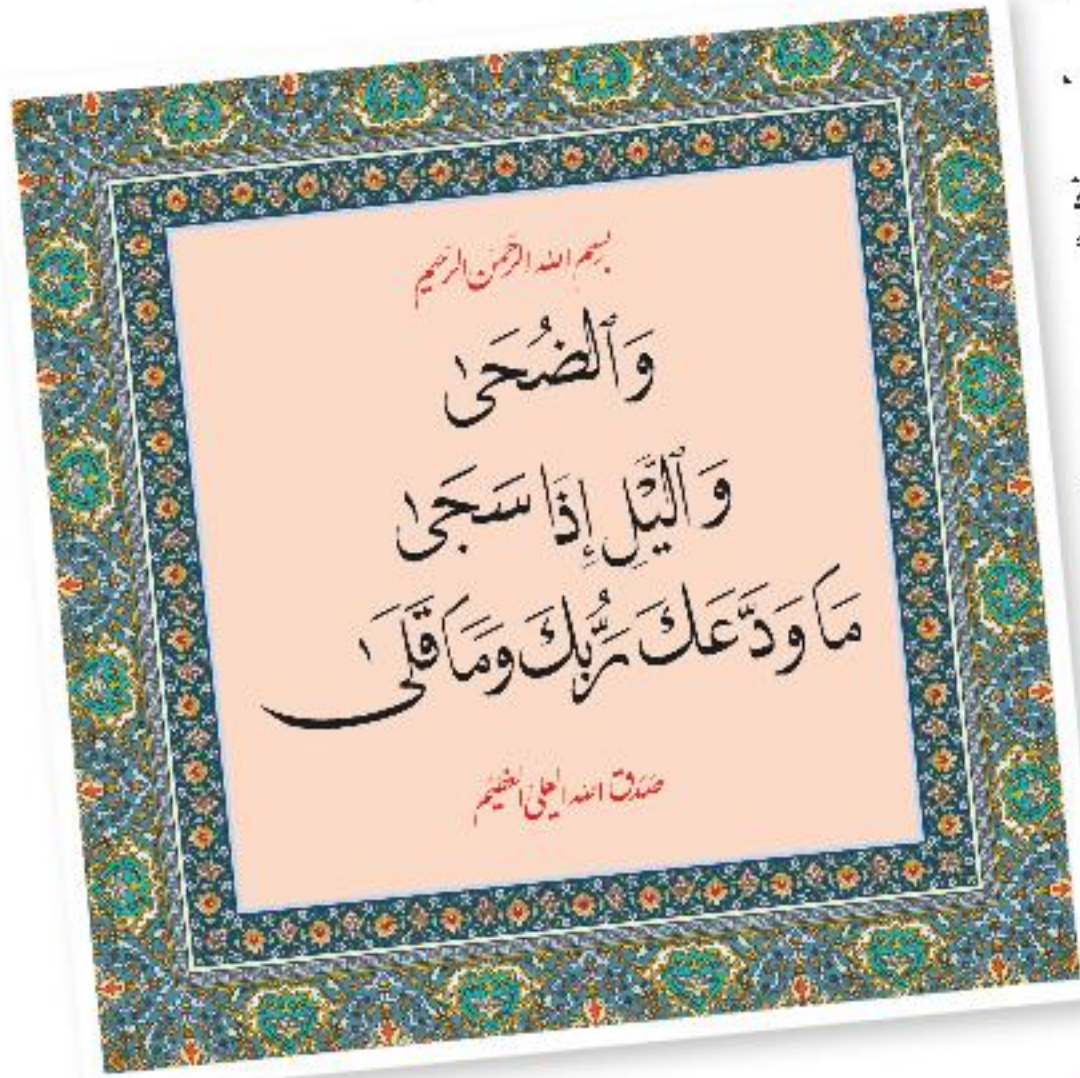 بسم الله الرحمن الرحیم
وَٱلضُّحَىٰ
وَٱلَّيْلِ إِذَا سَجَىٰ
مَا وَدَّعَكَ رَبُّكَ وَمَا قَلَىٰ
صدق الله العلی العظیم